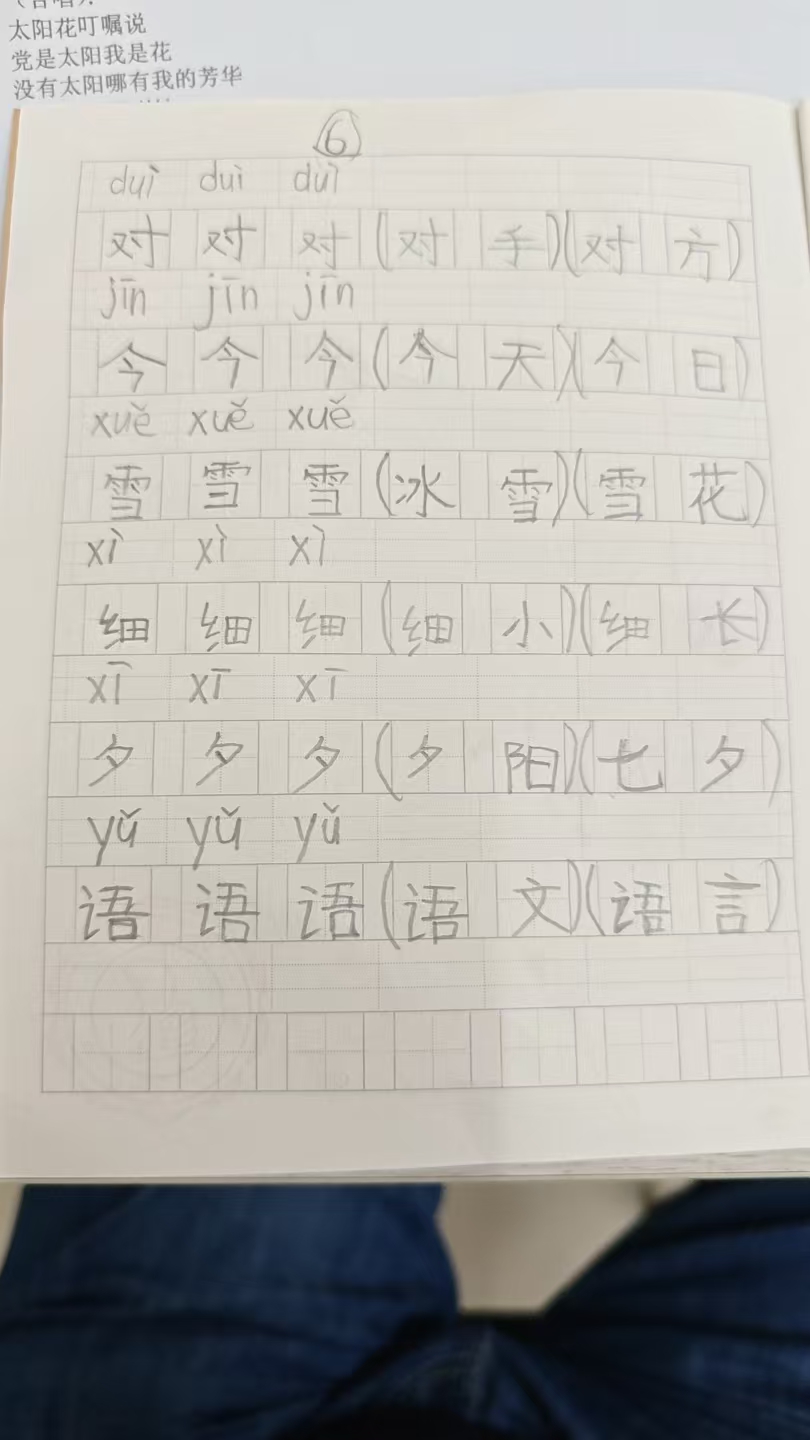 太阳花叮嘱说
党是太阳我是花
没有太阳哪有我的芳华
6
duì duì duì
对 对 对 (对 手)(对 方)
jīn jīn jīn
今 今 今 (今 天)(今 日)
xuě xuě xuě
雪 雪 雪 (冰 雪)(雪 花)
xì xì xì
细 细 细 (细 小)(细 长)
xī xī xī
夕 夕 夕 (夕 阳)(七 夕)
yǔ yǔ yǔ
语 语 语 (语 文)(语 言)